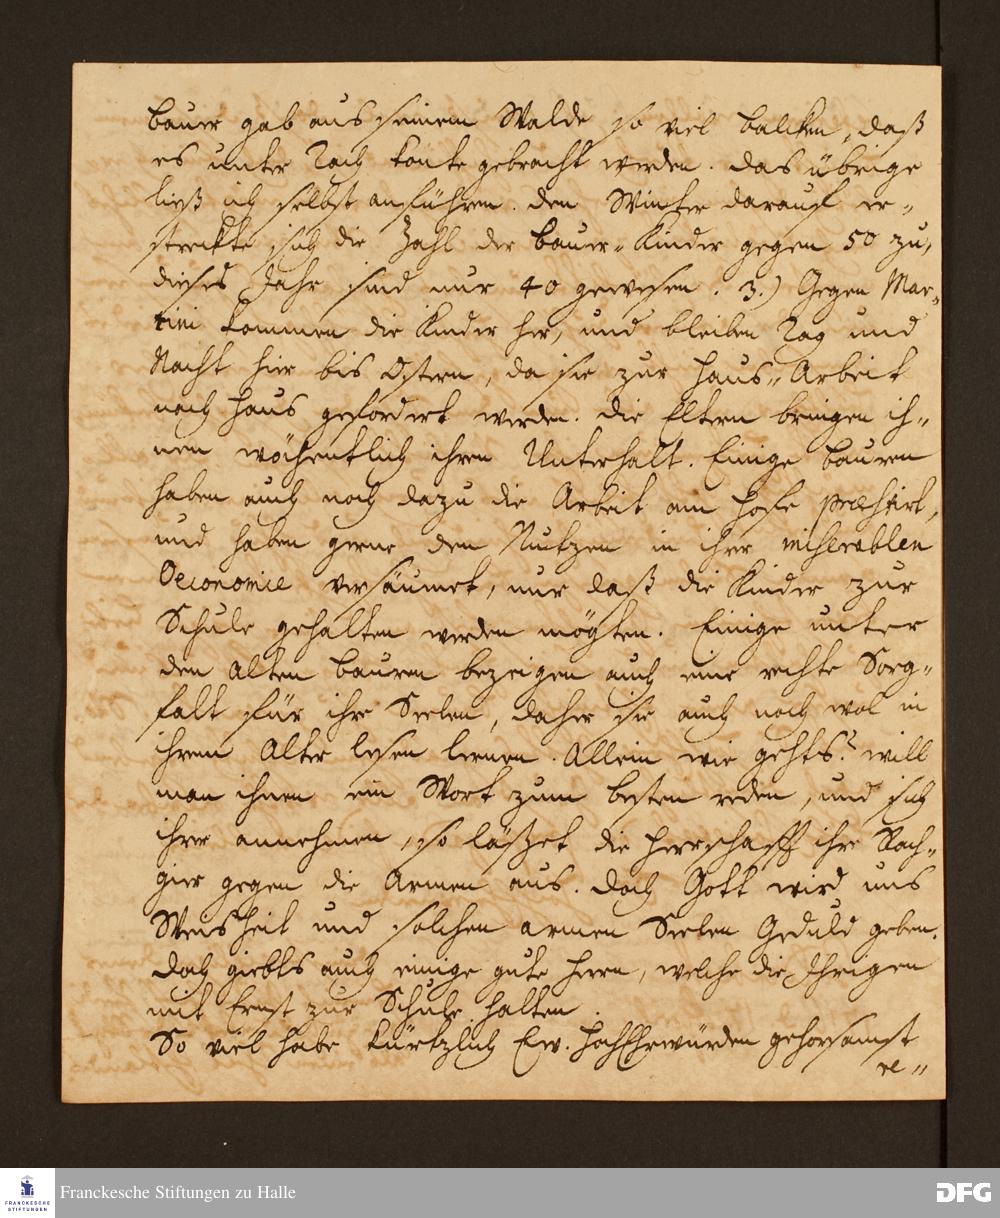 Bauer gab aus seinem Walde so viel balcken, daß
es unter Dach konte gebracht werden. Das übrige
ließ ich selbst anführen. Den Winter darauf er-
streckte sich die Zahl der Bauer-Kinder gegen 50 zu,
dieses Jahr sind nur 40 gewesen. 3.) Gegen Mar-
tini kommen die Kinder her, und bleiben Tag und
Nacht hier bis Ostern, da sie zur Haus-Arbeit
nach Haus gefordert werden. Die Eltern bringen ih-
nen wöchentlich ihren Unterhalt. Einige Bauren
haben auch noch dazu die Arbeit am Hofe praestirt,
und haben gerne den Nutzen in ihrer miserablen
Oeconomie versäumet, nur daß die Kinder zur
Schule gehalten werden mögten. Einige unter
den alten Bauren bezeigen auch eine rechte Sorg-
falt für ihre Seelen, daher sie auch noch wol in
ihrem Alter lesen lernen. Allein wie gehts? will
man ihnen ein Wort zum besten reden, und sich
ihrer annehmen, so läßet die Herrschafft ihre Rach-
gier gegen die Armen aus. Doch Gott wird uns
Weisheit und solchen armen Seelen Geduld geben.
Doch giebts auch einige gute Herren, welche die Ihrigen
mit Ernst zur Schule halten.
So viel habe kürtzlich Ew. HochEhrwürden gehorsamst
re-
Franckesche Stiftungen zu Halle
FRANCKESCHE
STIFTUNGEN
DFG